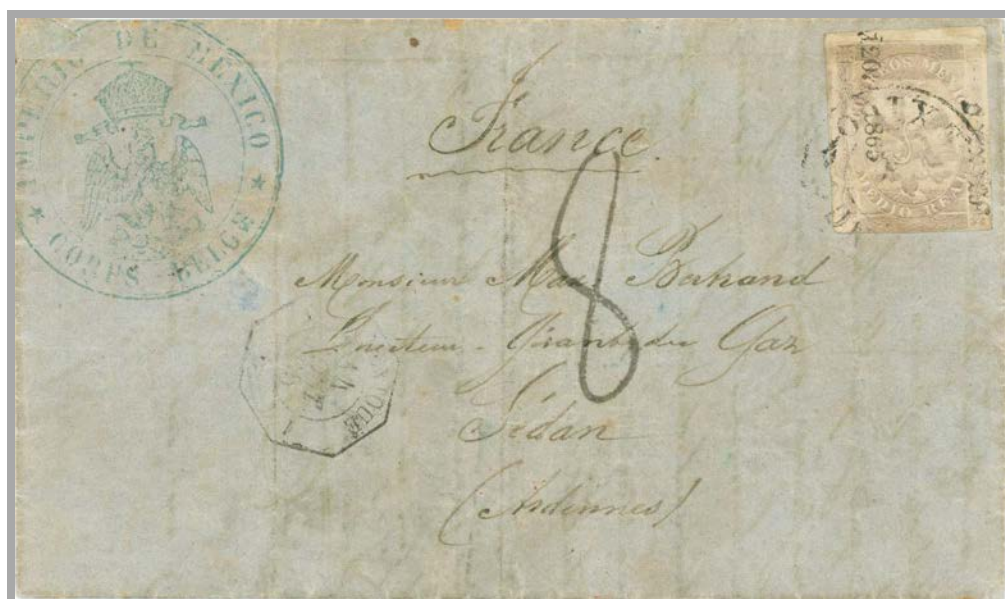 IMPERIO DE MEXICO
★ CORPS BELGE ★
CORREOS MEJICO
MEDIO REAL
1865
France
8
Monsieur Max Bertrand
Directeur-Gérant du Gaz
Sédan
(Ardennes)